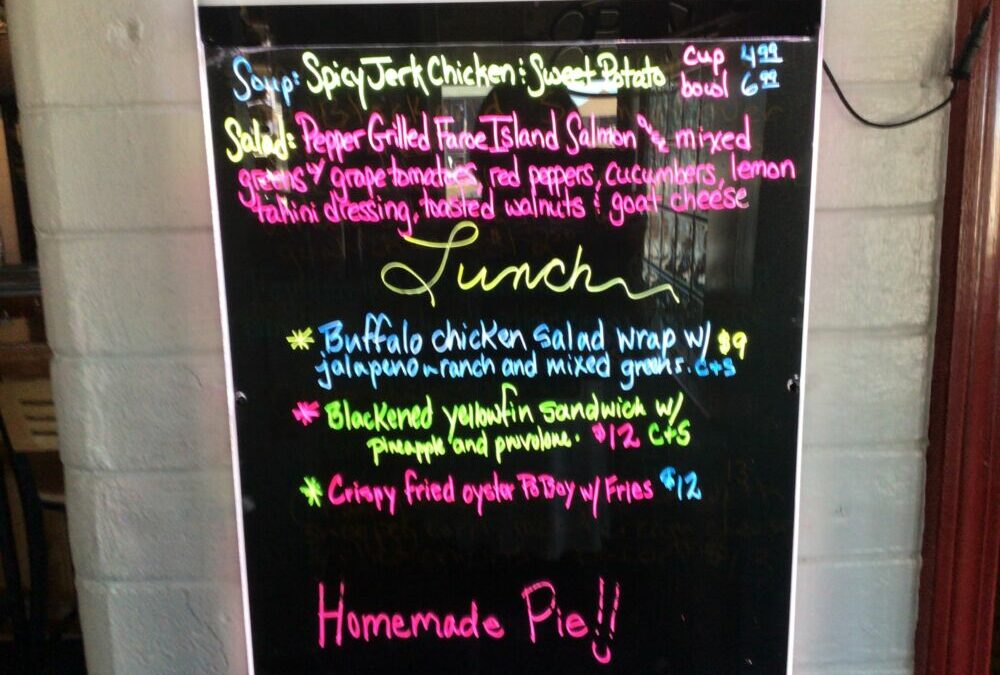 Soup: Spicy Jerk Chicken & Sweet Potato cup 4.99
bowl 6.99
Salad: Pepper Grilled Faroe Island Salmon over mixed
greens w/ grape tomatoes, red peppers, cucumbers, lemon
tahini dressing, toasted walnuts & goat cheese
Lunch
* Buffalo chicken salad wrap w/ $9
jalapeno ranch and mixed greens. C+S
* Blackened yellowfin sandwich w/
pineapple and provolone. $12 C+S
* Crispy fried oyster Po Boy w/ Fries $12
Homemade Pie!!